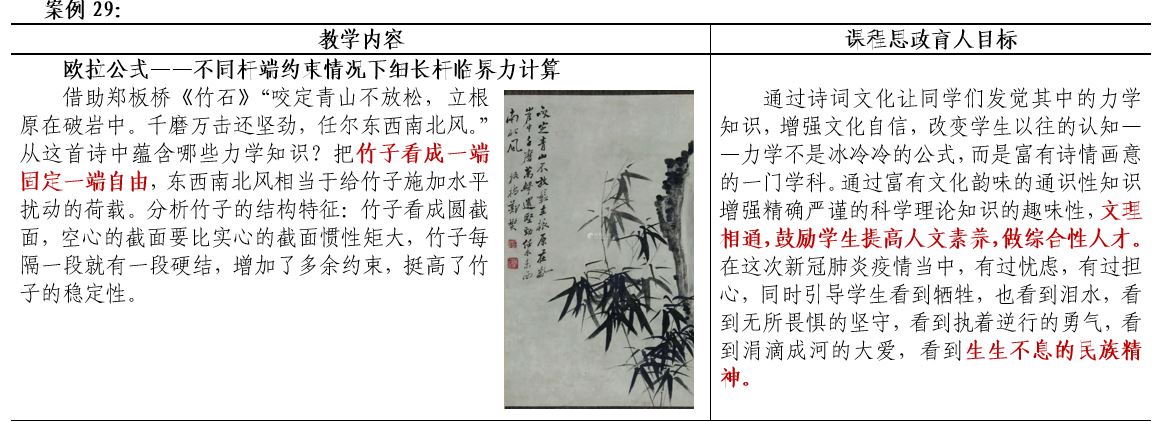 案例 29：
教学内容
课程思政育人目标
欧拉公式——不同杆端约束情况下细长杆临界力计算
借助郑板桥《竹石》“咬定青山不放松，立根
原在破岩中。千磨万击还坚劲，任尔东西南北风。”
从这首诗中蕴含哪些力学知识？把竹子看成一端
固定一端自由，东西南北风相当于给竹子施加水平
扰动的荷载。分析竹子的结构特征：竹子看成圆截
面，空心的截面要比实心的截面惯性矩大，竹子每
隔一段就有一段硬结，增加了多余约束，挺高了竹
子的稳定性。
通过诗词文化让同学们发觉其中的力学
知识，增强文化自信，改变学生以往的认知—
—力学不是冰冷冷的公式，而是富有诗情画意
的一门学科。通过富有文化韵味的通识性知识
增强精确严谨的科学理论知识的趣味性，文理
相通，鼓励学生提高人文素养，做综合性人才。
在这次新冠肺炎疫情当中，有过忧虑，有过担
心，同时引导学生看到牺牲，也看到泪水，看
到无所畏惧的坚守，看到执着逆行的勇气，看
到涓滴成河的大爱，看到生生不息的民族精
神。